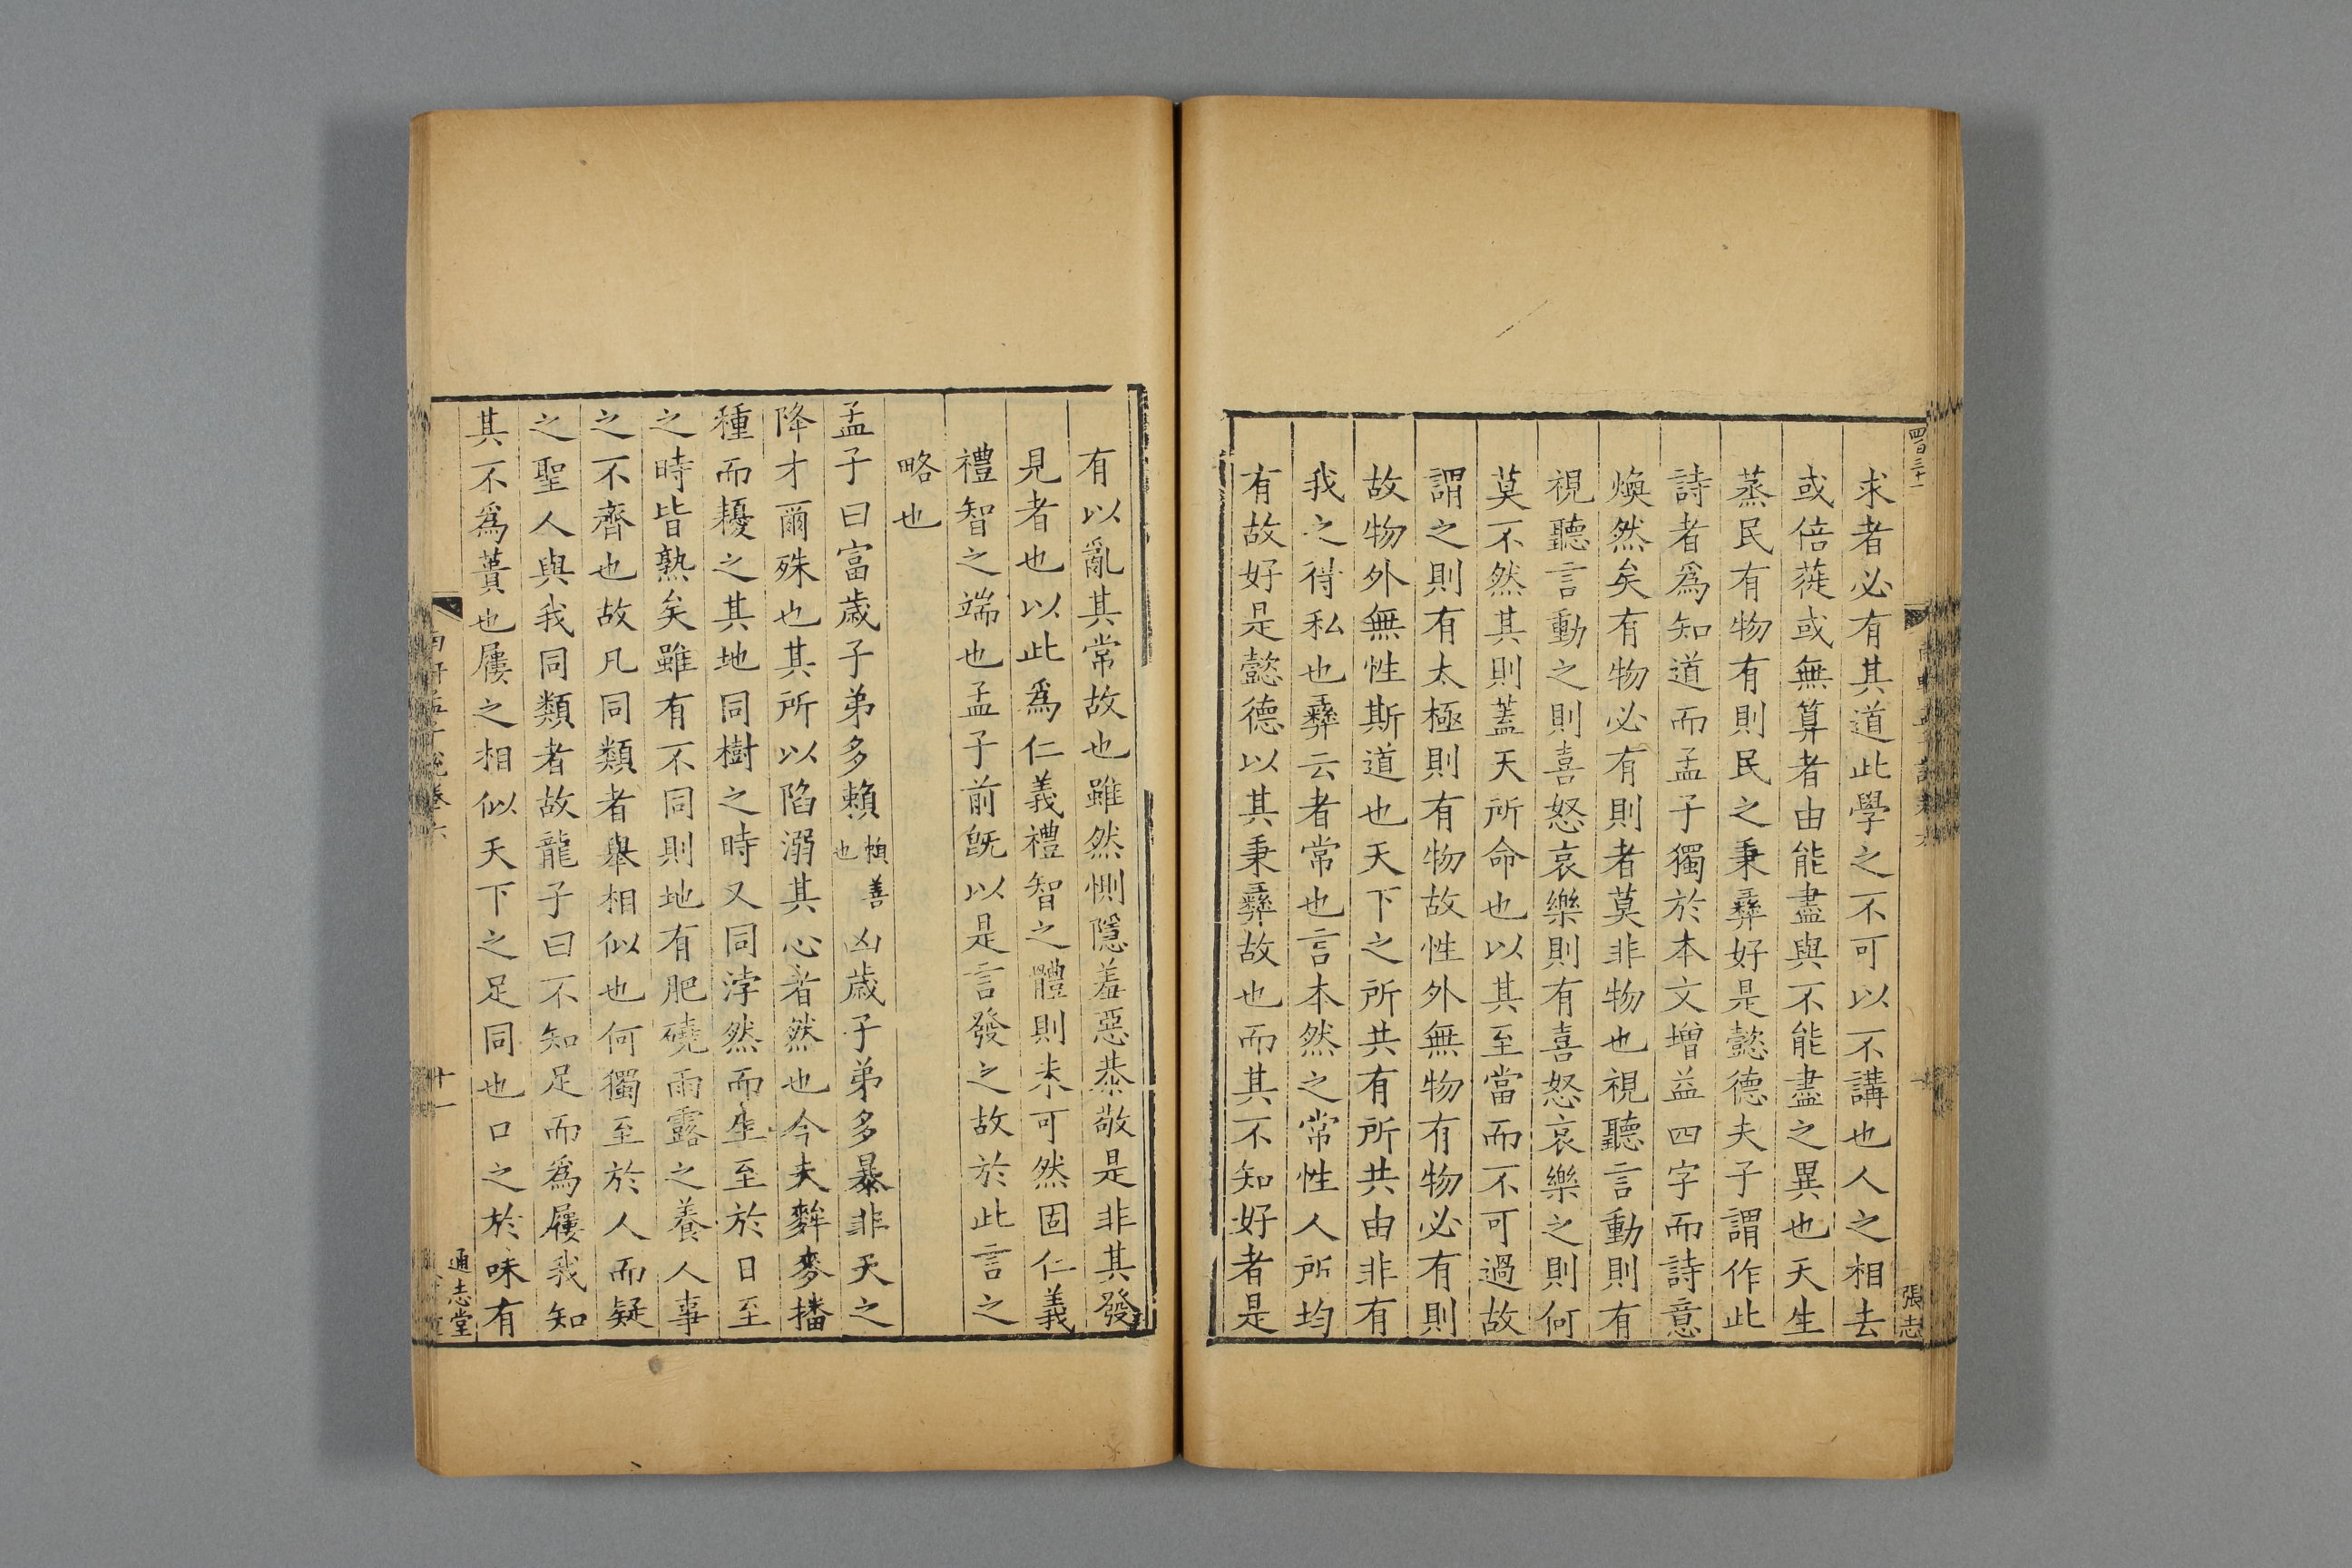 四百三十一
求者必有其道此學之不可以不講也人之相去
或倍蓰或無算者由能盡與不能盡之異也天生
蒸民有物有則民之秉彞好是懿德夫子謂作此
詩者爲知道而孟子獨於本文增益四字而詩意
煥然矣有物必有則者莫非物也視聽言動則有
視聽言動之則喜怒哀樂則有喜怒哀樂之則何
莫不然其則蓋天所命也以其至當而不可過故
謂之則有太極則有物故性外無物有物必有則
故物外無性斯道也天下之所共有所共由非有
我之得私也彞云者常也言本然之常性人所均
有故好是懿德以其秉彞故也而其不知好者是
張志
有以亂其常故也雖然惻隱羞惡恭敬是非其發
見者也以此爲仁義禮智之體則未可然固仁義
禮智之端也孟子前旣以是言發之故於此言之
略也
孟子曰富歲子弟多賴賴善也凶歲子弟多暴非天之
降才爾殊也其所以陷溺其心者然也今夫麰麥播
種而耰之其地同樹之時又同浡然而生至於日至
之時皆熟矣雖有不同則地有肥磽雨露之養人事
之不齊也故凡同類者舉相似也何獨至於人而疑
之聖人與我同類者故龍子曰不知足而爲屨我知
其不爲蕢也屨之相似天下之足同也口之於味有
孟子說卷六
十一
通志堂